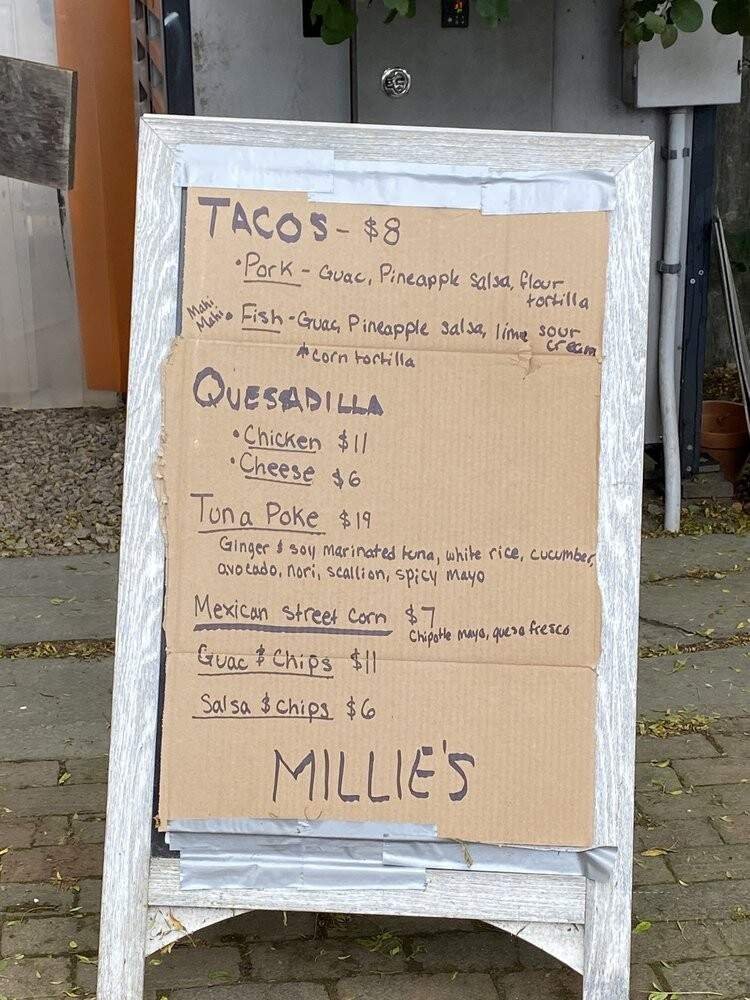 TACOS - $8
• Pork - Guac, Pineapple Salsa, flour
tortilla
Mahi
Mahi • Fish - Guac, Pineapple salsa, lime sour
cream
& corn tortilla
QUESADILLA
• Chicken $11
• Cheese $6
Tuna Poke $19
Ginger & soy marinated tuna, white rice, cucumber,
avocado, nori, scallion, spicy mayo
Mexican street corn $7
Chipotle mayo, queso fresco
Guac & Chips $11
Salsa & Chips $6
MILLIE'S